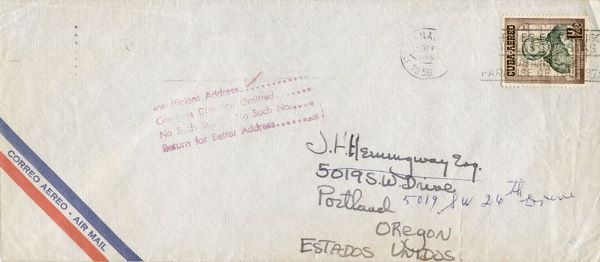 CUBA-AEREO
12c
1956
Insufficient Address
Careless Direction Omitted
No Such St. No Such No.
Return for Better Address
CORREO AEREO - AIR MAIL
J. H Hemingway Esq.
5019 S.W. Drive
Portland 5019 SW 26th Drive
OREGON
ESTADOS UNIDOS.